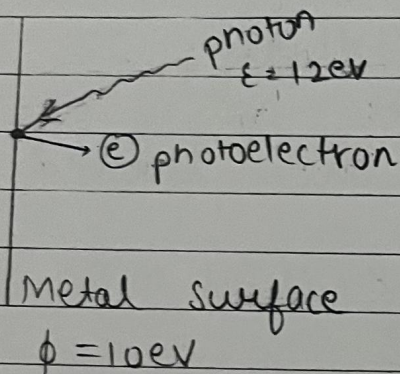 photon
ε=12eV
e photoelectron
Metal surface
ϕ =10eV